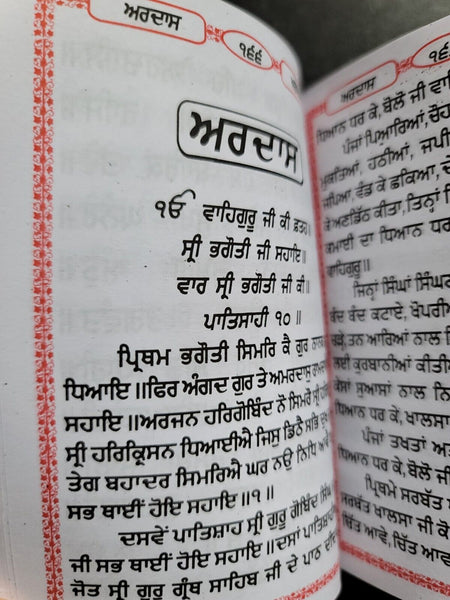 ਅਰਦਾਸ
੧੬੬
ਅਰਦਾਸ
ੴ ਵਾਹਿਗੁਰੂ ਜੀ ਕੀ ਫ਼ਤਹ॥
ਸ੍ਰੀ ਭਗੌਤੀ ਜੀ ਸਹਾਇ॥
ਵਾਰ ਸ੍ਰੀ ਭਗੌਤੀ ਜੀ ਕੀ॥
ਪਾਤਿਸਾਹੀ ੧੦॥
ਪ੍ਰਿਥਮ ਭਗੌਤੀ ਸਿਮਰਿ ਕੈ ਗੁਰ ਨਾਨਕ
ਧਿਆਇ॥ਫਿਰ ਅੰਗਦ ਗੁਰ ਤੇ ਅਮਰਦਾਸੁ ਰਾਮਦਾਸੈ
ਸਹਾਇ॥ਅਰਜਨ ਹਰਿਗੋਬਿੰਦ ਨੋ ਸਿਮਰੌ ਸ੍ਰੀ ਹਰਿ
ਸ੍ਰੀ ਹਰਿਕ੍ਰਿਸਨ ਧਿਆਈਐ ਜਿਸੁ ਡਿਠੈ ਸਭਿ ਦੁਖ
ਤੇਗ ਬਹਾਦਰ ਸਿਮਰਿਐ ਘਰ ਨਉ ਨਿਧਿ ਆਵੈ
ਸਭ ਥਾਈਂ ਹੋਇ ਸਹਾਇ॥੧॥
ਦਸਵੇਂ ਪਾਤਿਸ਼ਾਹ ਸ੍ਰੀ ਗੁਰੂ ਗੋਬਿੰਦ ਸਿੰਘ
ਜੀ ਸਭ ਥਾਈਂ ਹੋਇ ਸਹਾਇ॥ਦਸਾਂ ਪਾਤਿਸ਼ਾਹੀਆਂ
ਜੋਤ ਸ੍ਰੀ ਗੁਰੂ ਗ੍ਰੰਥ ਸਾਹਿਬ ਜੀ ਦੇ ਪਾਠ
ਅਰਦਾਸ
ਧਿਆਨ ਧਰ ਕੇ, ਬੋਲੋ ਜੀ
ਪੰਜਾਂ ਪਿਆਰਿਆਂ,
ਮੁਕਤਿਆਂ, ਹਠੀਆਂ, ਜਪੀ
ਜਪਿਆ, ਵੰਡ ਕੇ ਛਕਿਆ,
ਕੇ ਅਣਡਿੱਠ ਕੀਤਾ, ਤਿਨ੍ਹਾਂ
ਕਮਾਈ ਦਾ ਧਿਆਨ ਧਰ
ਵਾਹਿਗੁਰੂ॥
ਜਿਨ੍ਹਾਂ ਸਿੰਘਾਂ ਸਿੰਘਣ
ਬੰਦ ਬੰਦ ਕਟਾਏ, ਖੋਪਰੀ
ਗਏ, ਤਨ ਆਰਿਆਂ ਨਾਲ
ਲਈ ਕੁਰਬਾਨੀਆਂ ਕੀਤੀ
ਕੇਸਾਂ ਸੁਆਸਾਂ ਨਾਲ
ਧਿਆਨ ਧਰ ਕੇ, ਖਾਲਸਾ
ਪੰਜਾਂ ਤਖਤਾਂ
ਧਿਆਨ ਧਰ ਕੇ, ਬੋਲੋ ਜੀ
ਪ੍ਰਿਥਮੇ ਸਰਬੱਤ
ਸਰਬੱਤ ਖਾਲਸਾ ਜੀ ਕੋ
ਚਿੱਤ ਆਵੇ, ਚਿੱਤ ਆਵ